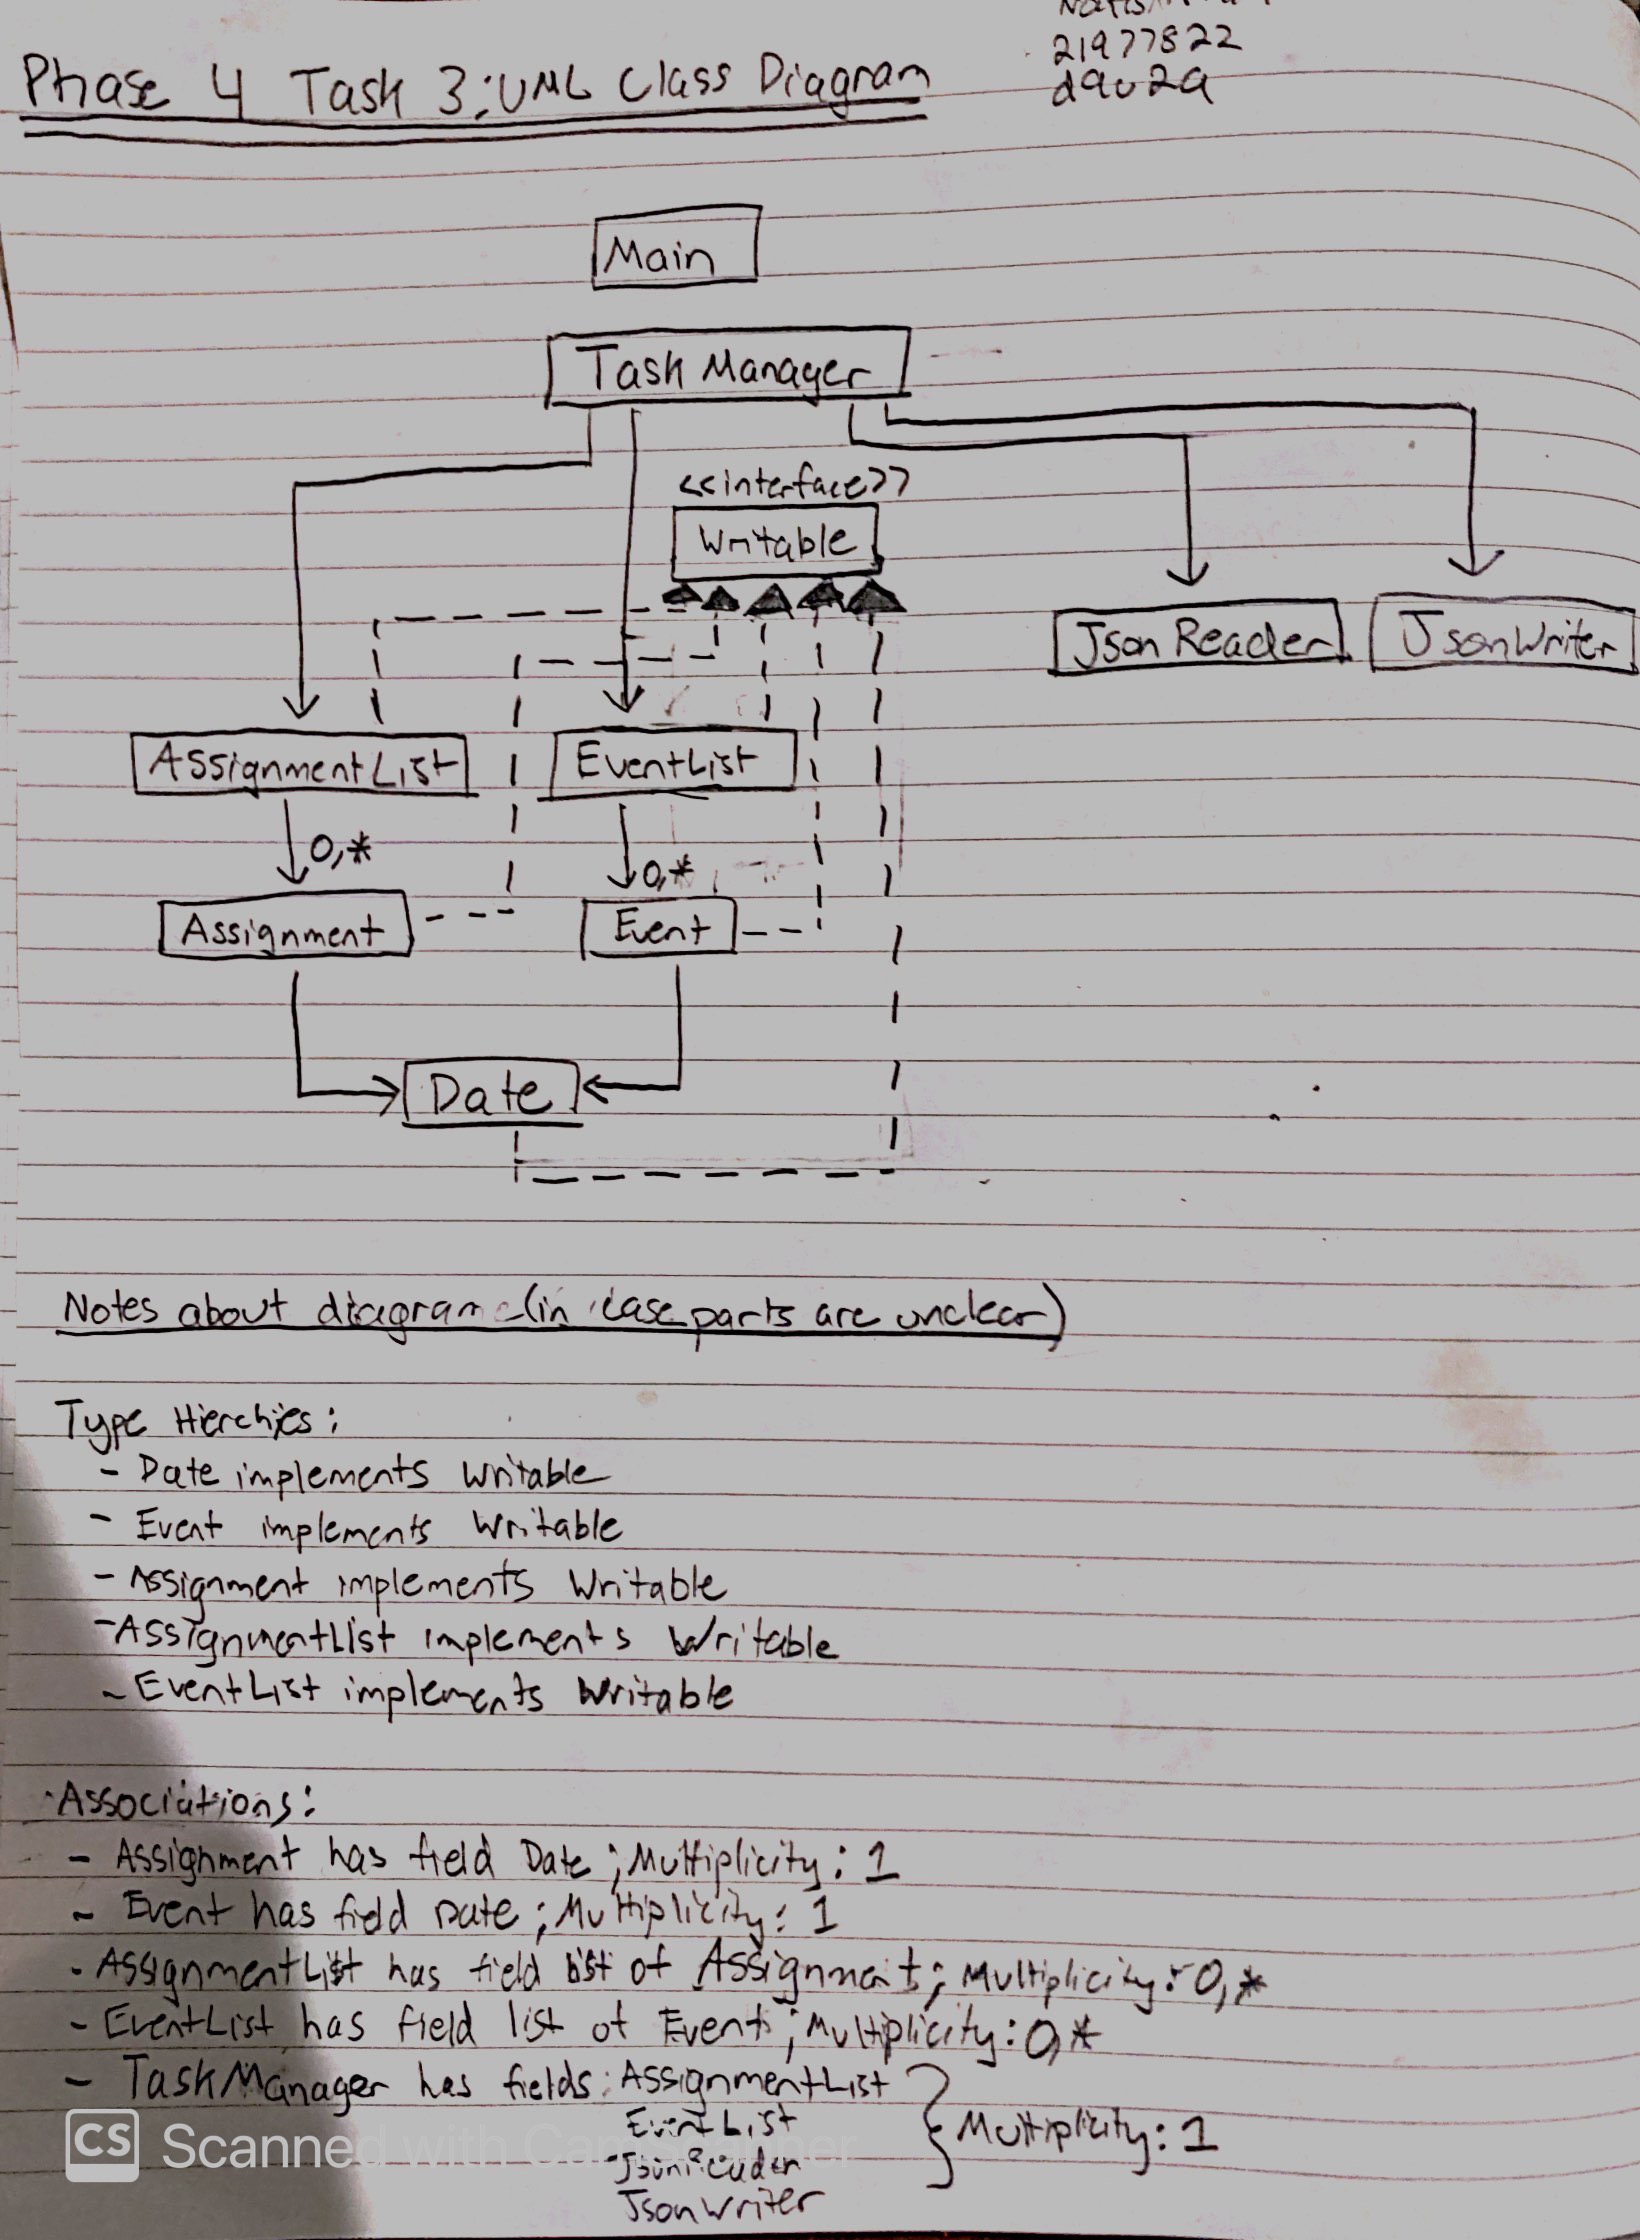 21977822
Phase 4 Task 3: UML Class Diagram
d9u2a
Main
Task Manager
<<interface>>
Writable
Json Reader
JsonWriter
AssignmentList
EventList
0,*
0,*
Assignment
Event
Date
Notes about diagram - (in case parts are unclear)
Type Hierchies:
- Date implements Writable
- Event implements Writable
- Assignment implements Writable
- AssignmentList implements Writable
- EventList implements Writable
Associations:
- Assignment has field Date; Multiplicity: 1
- Event has field Date; Multiplicity: 1
- AssignmentList has field list of Assignment; Multiplicity: 0,*
- EventList has field list of Event; Multiplicity: 0,*
- TaskManager has fields: AssignmentList
EventList
Multiplicity: 1
JsonReader
JsonWriter
CS Scanned with CamScanner